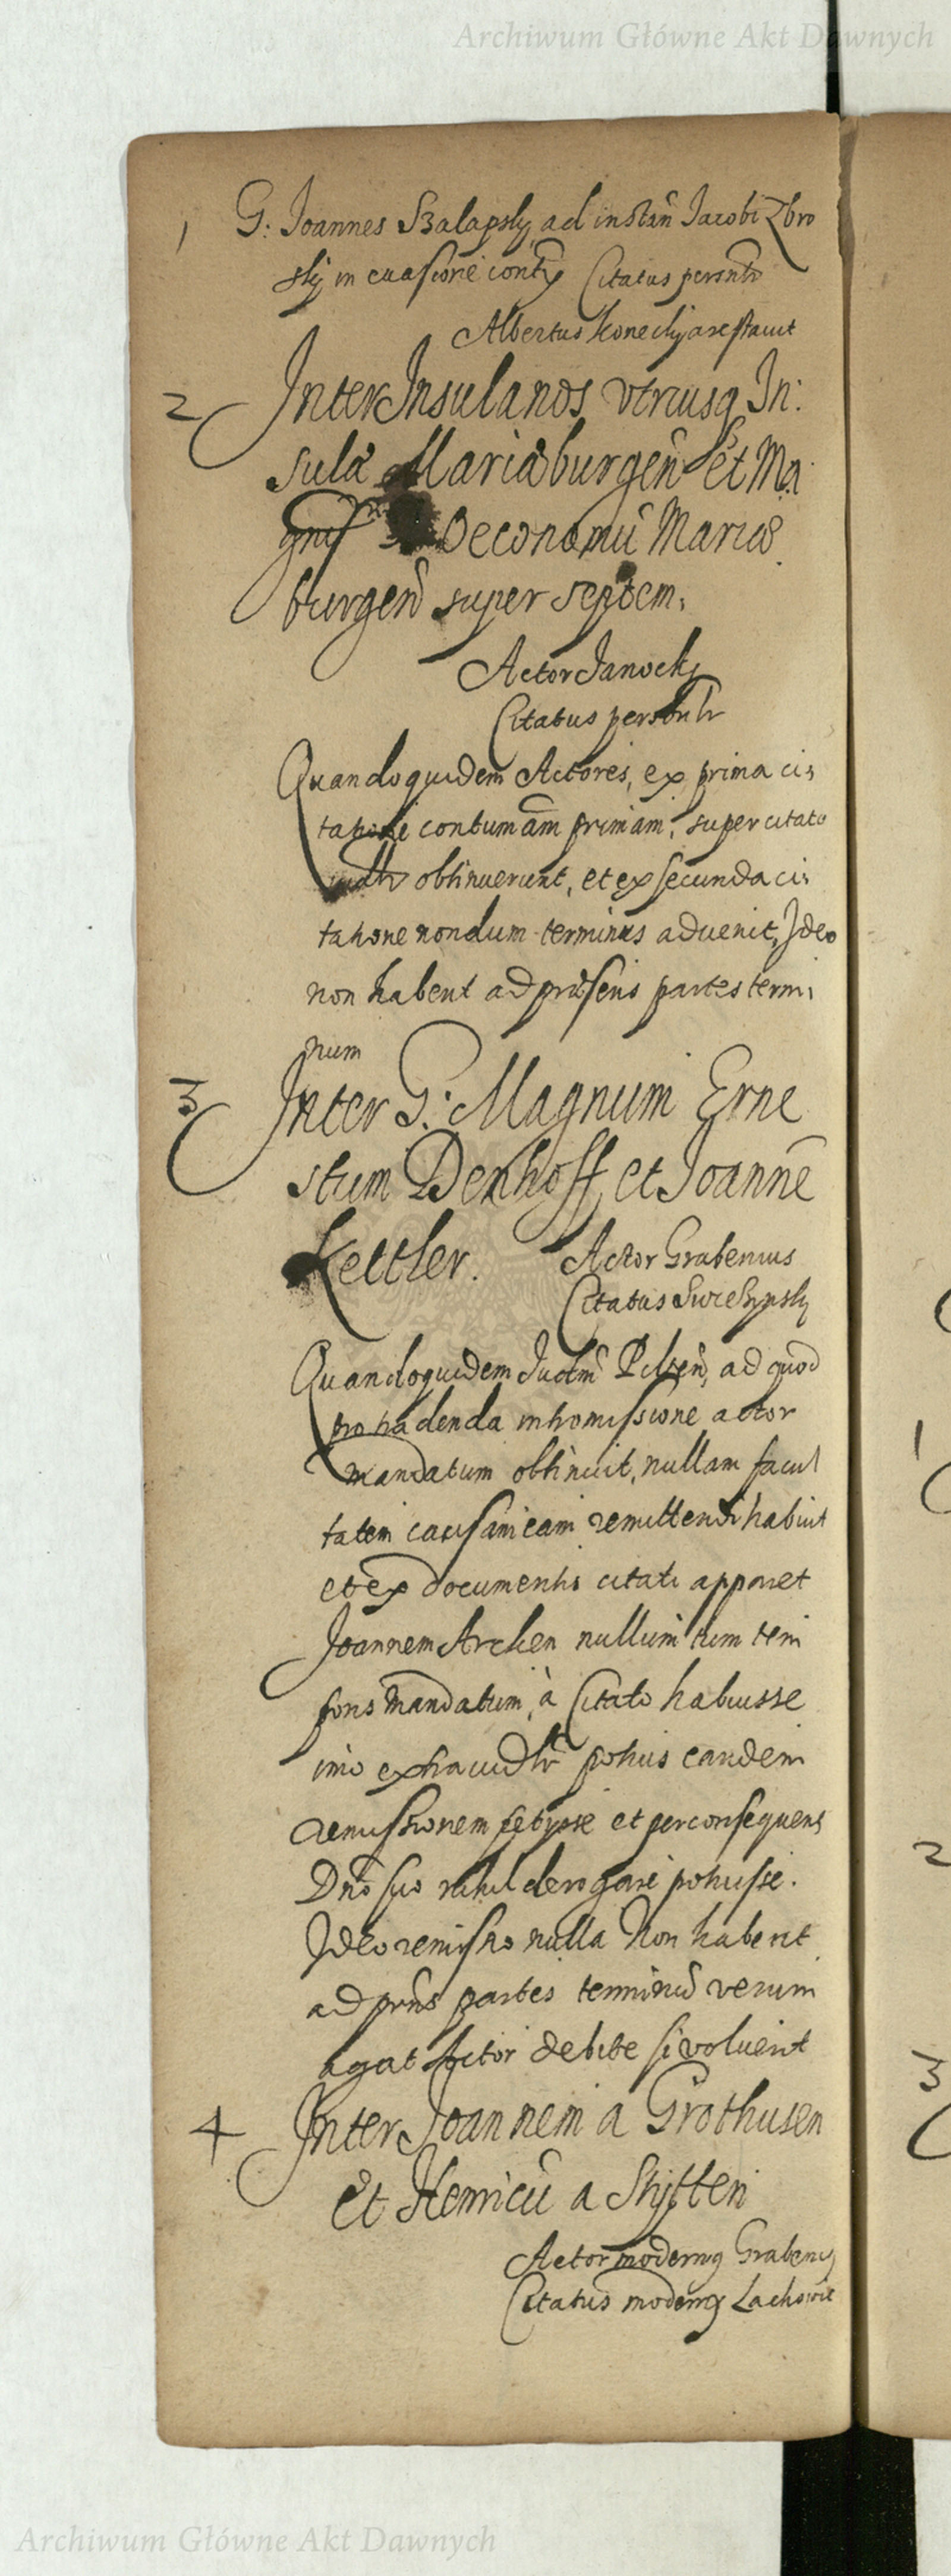 Archiwum Główne Akt Dawnych
1 G: Joannes Szalapsky, ad instan̄ Jacobi Zbro
sky in euasione
Citatus personlr
Albertus arestauit
2 Inter Insulanos vtriusq In:
sulæ Mariæburgen̄ et Ma
gnif Oeconomū Mariæ
burgen̄ super septem.
Actor Janocky
Citatus personlr
Quandoquidem Actores, ex prima ci,
tatione contumam̄ primam, super citato
obtinuerunt, et ex secunda ci,
tatione nondum terminus aduenit, Ideo
non habent ad præsens partes termi,
num
3 Inter G: Magnum Erne
stum Denhoff et Joannē
Kettler.
Actor Grabenius
Citatus
Quandoquidem Judm̄ Pilten̄, ad quod
pro tradenda intromissione actor
mandatum obtinuit, nullam facul
tatem causam eam remittendi habuit
et ex documentis citati apparet
Joannem Arcken nullum tum tem
poris mandatum, à Citato habuisse
imo potius eandem
remissionem fecisse et per consequens
Dnō suo nihil derogare potuisse.
Ideo remissio nulla Non habent
ad prns̄ partes terminū verum
agat Actor debite si voluerit
4 Inter Joannem a Grothusen
et Henricū a Stytten
Actor modernq Grabenq
Citatus modernq
1
2
3
Archiwum Główne Akt Dawnych